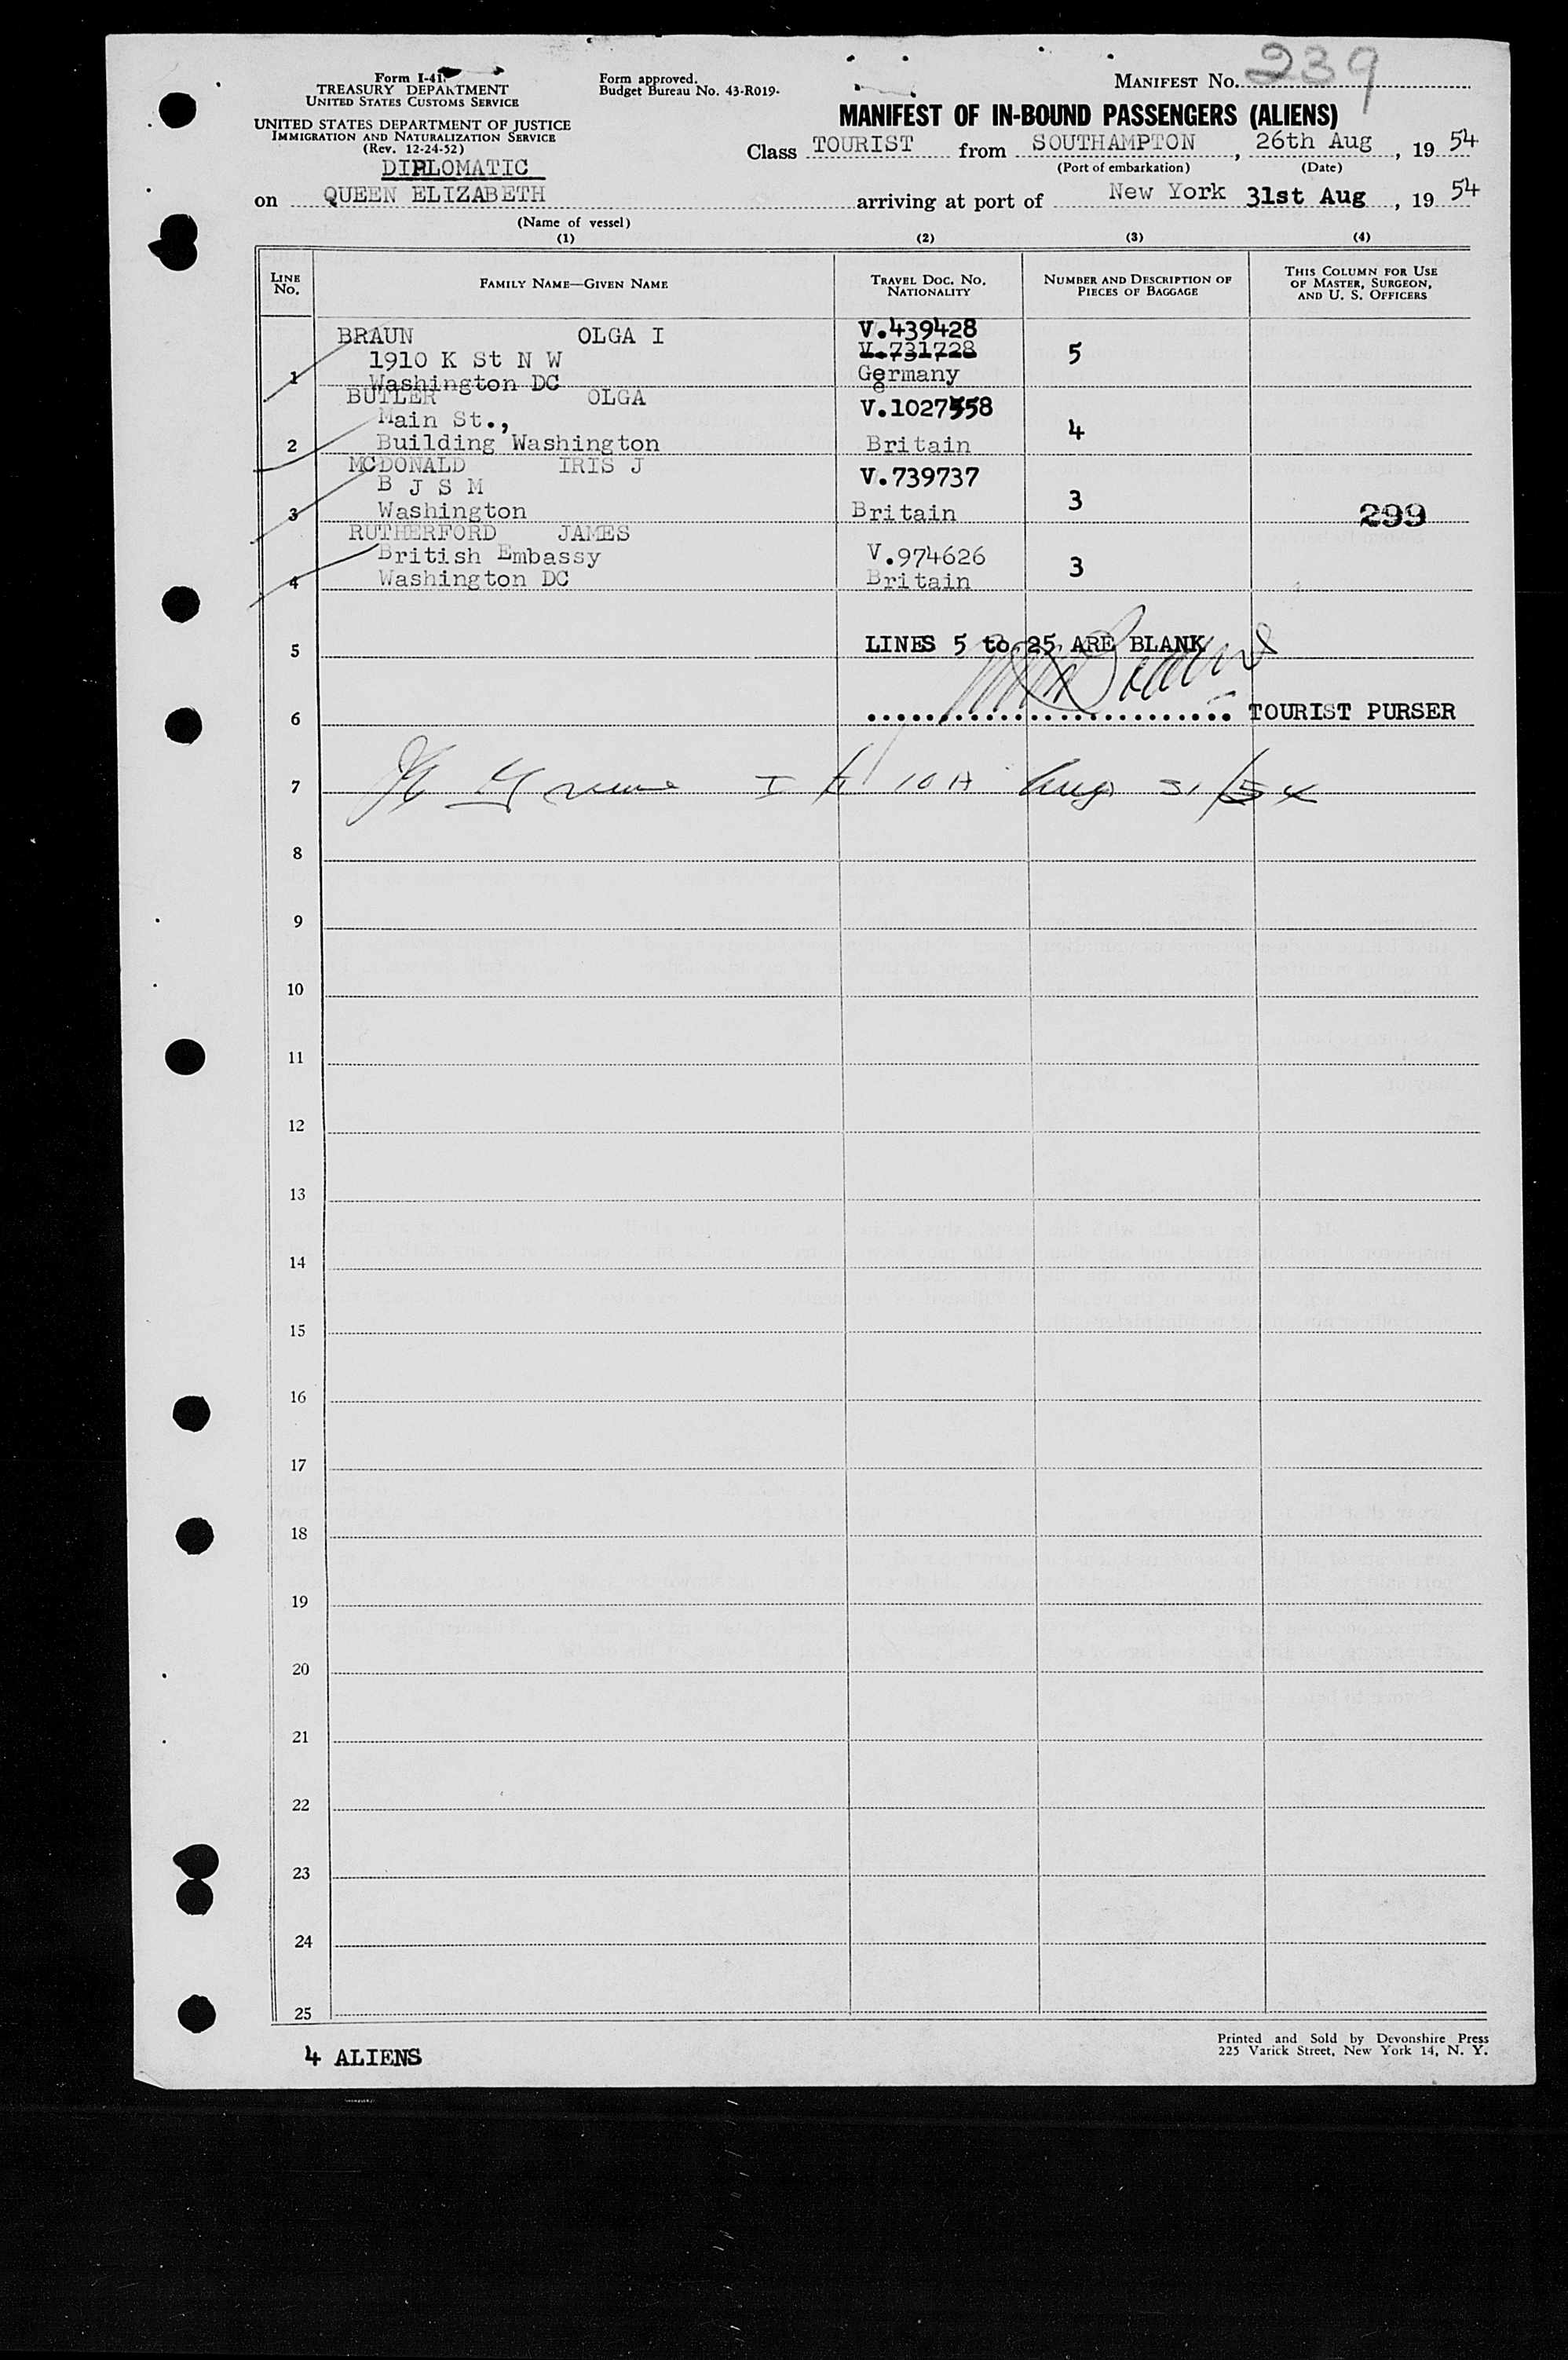 Form I-41
TREASURY DEPARTMENT
UNITED STATES CUSTOMS SERVICE
UNITED STATES DEPARTMENT OF JUSTICE
IMMIGRATION AND NATURALIZATION SERVICE
(Rev. 12-24-52)
DIPLOMATIC
Form approved.
Budget Bureau No. 43-R019-
MANIFEST No. 239
MANIFEST OF IN-BOUND PASSENGERS (ALIENS)
Class TOURIST from SOUTHAMPTON, 26th Aug, 19 54
(Port of embarkation) (Date)
on QUEEN ELIZABETH arriving at port of New York 31st Aug, 19 54
(Name of vessel)
(1) (2) (3) (4)
LINE No. FAMILY NAME—GIVEN NAME TRAVEL DOC. NO. NATIONALITY NUMBER AND DESCRIPTION OF PIECES OF BAGGAGE THIS COLUMN FOR USE OF MASTER, SURGEON, AND U. S. OFFICERS
BRAUN OLGA I V.439428
1910 K St N W V.731728 5
1 Washington DC Germany
BUTLER OLGA V.1027558
Main St., 4
2 Building Washington Britain
MCDONALD IRIS J V.739737
B J S M 3
3 Washington Britain 299
RUTHERFORD JAMES
British Embassy V.974626 3
4 Washington DC Britain
5 LINES 5 to 25 ARE BLANK
6 TOURIST PURSER
7 Aug 31/54
8
9
10
11
12
13
14
15
16
17
18
19
20
21
22
23
24
25
4 ALIENS
Printed and Sold by Devonshire Press
225 Varick Street, New York 14, N. Y.